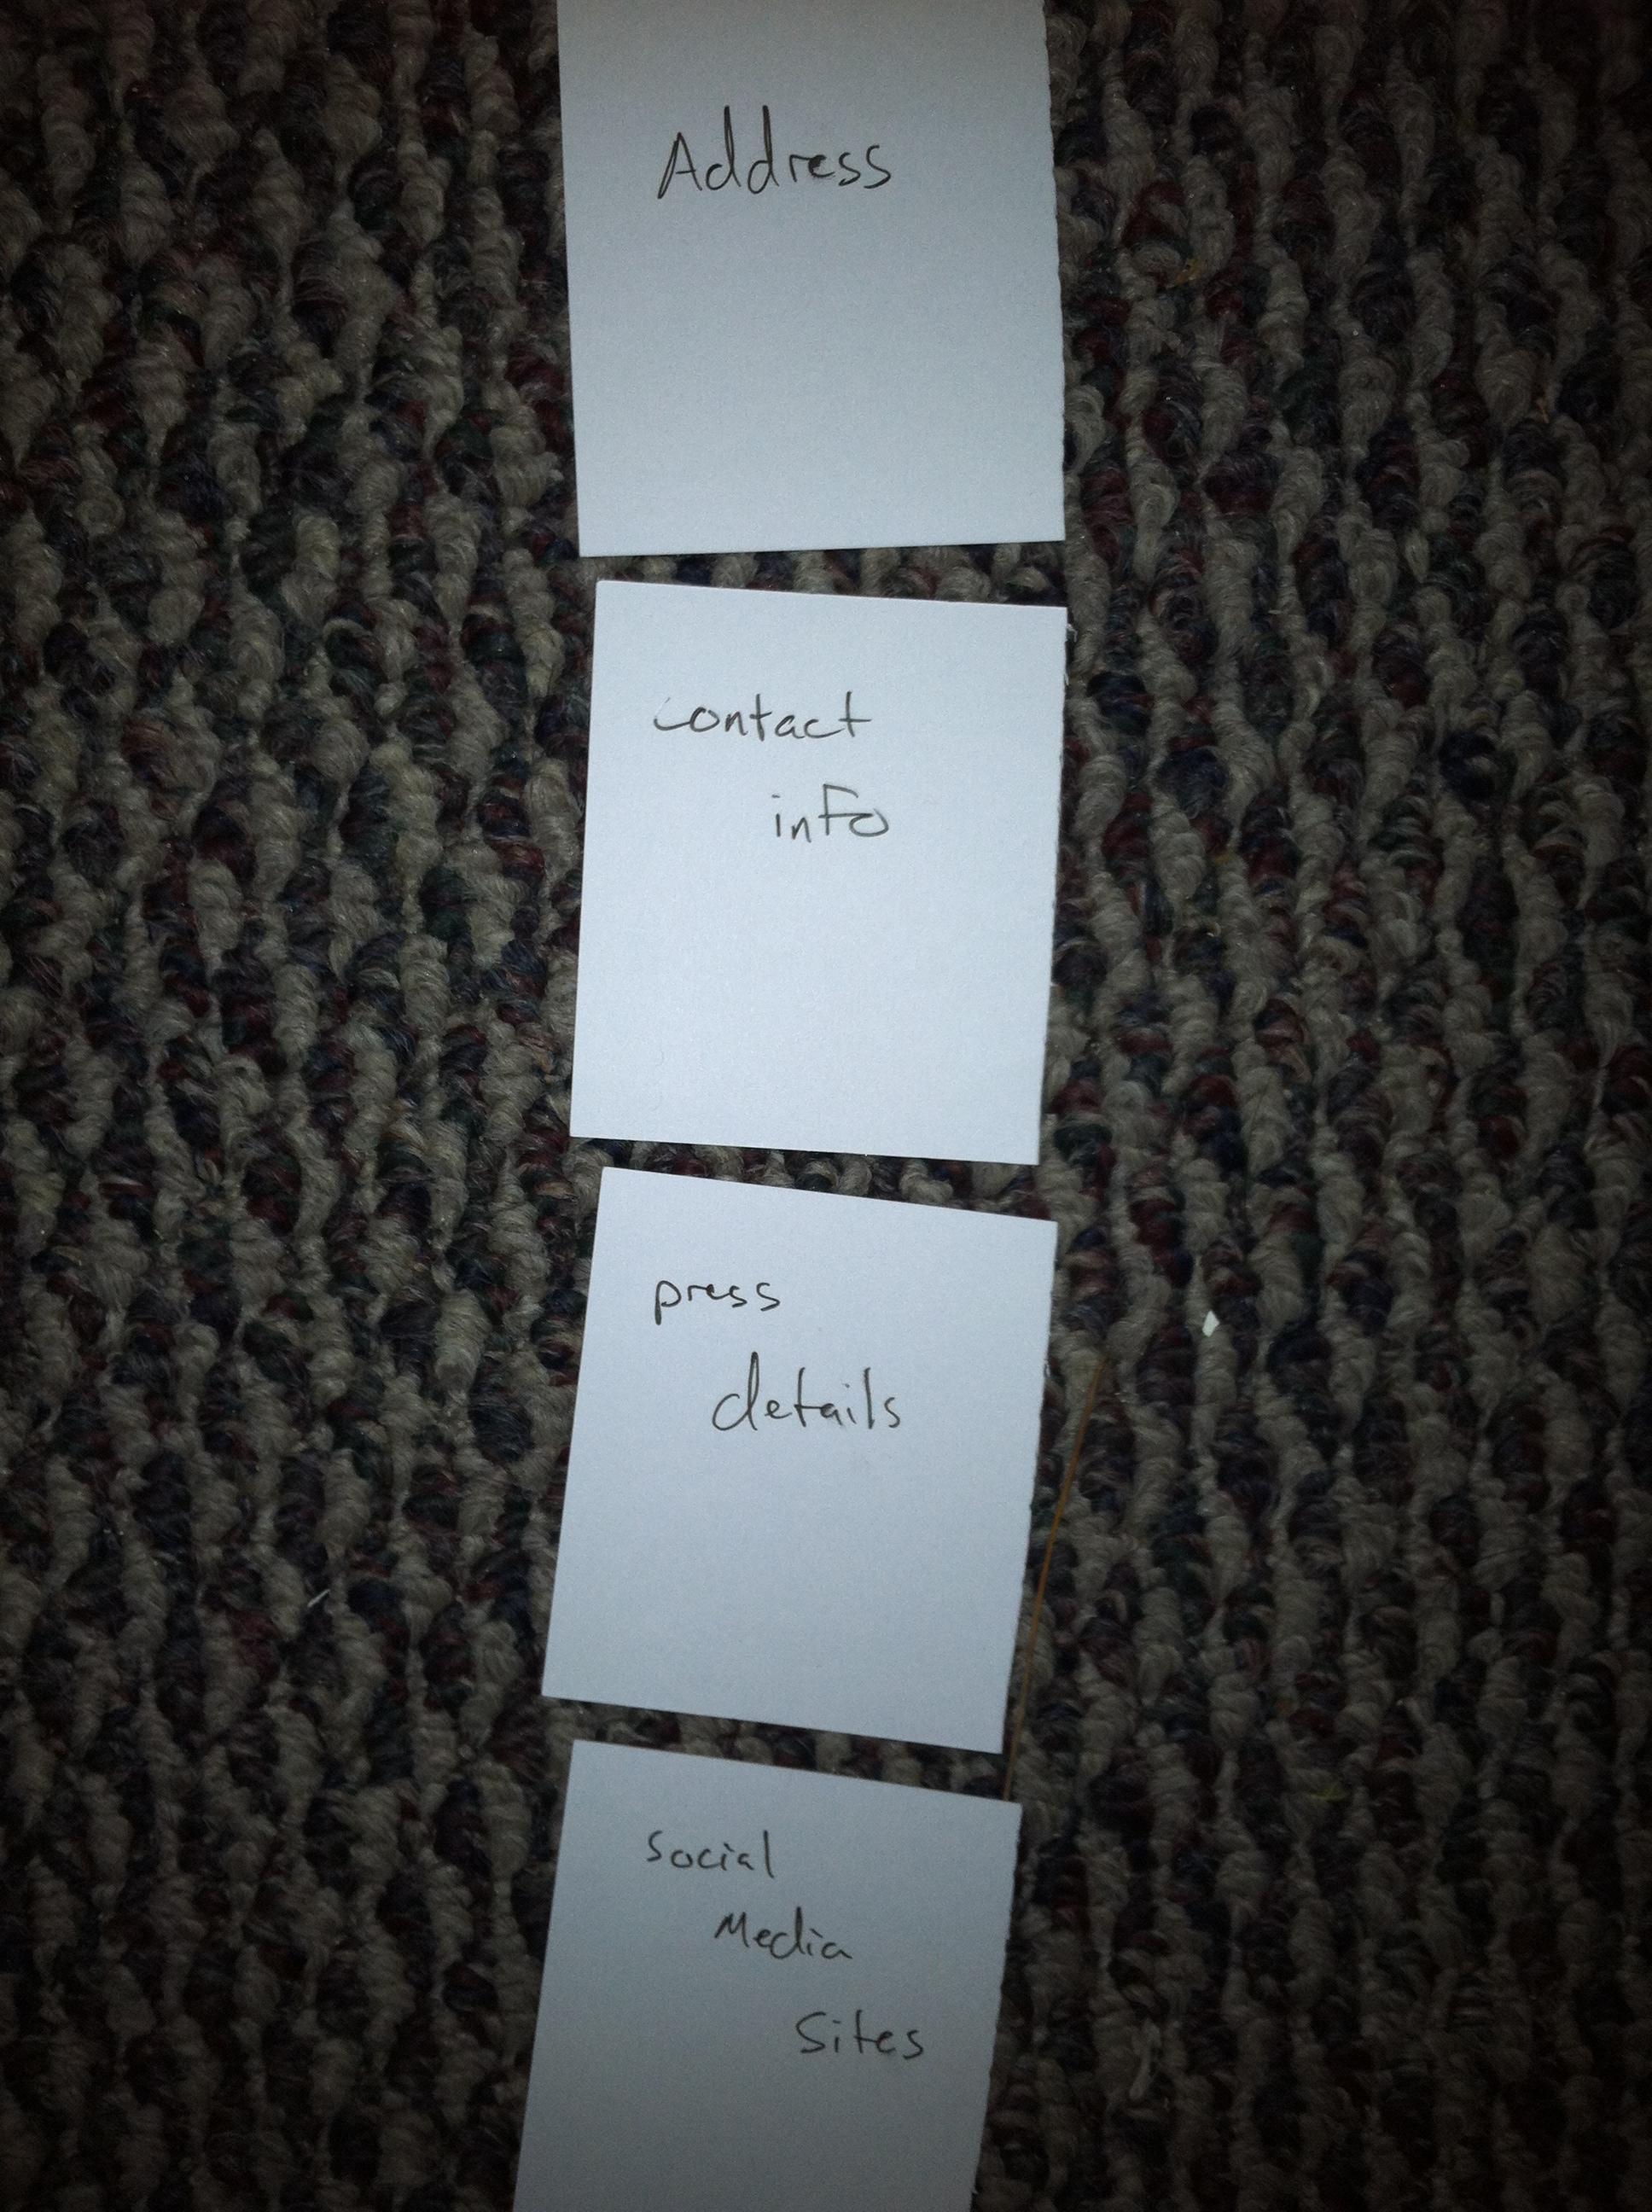 Address
contact
info
press
details
social
Media
Sites